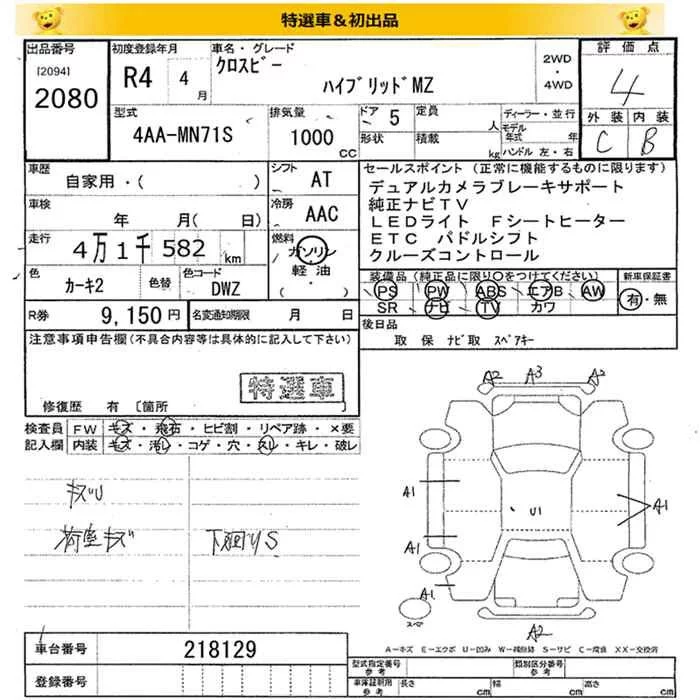 特選車&初出品
出品番号 初度登録年月 車名・グレード 評価点
[2094] 2080 R4 4月 クロスビー ハイブリッドMZ 2WD・4WD 4
型式 4AA-MN71S 排気量 1000 CC ドア 5 形状 定員 人 積載 kg ディーラー・並行 モデル年式 年 ハンドル 左・右 外装 C 内装 B
車歴 自家用・( ) シフト AT
車検 年 月(日) 冷房 AAC
走行 4万1千582 km 燃料 ガソリン・軽油( ・ )
色 カーキ2 色替 色コード DWZ
R券 9,150円 名変通知期限 月 日
セールスポイント(正常に機能するものに限ります)
デュアルカメラブレーキサポート
純正ナビTV
LEDライト Fシートヒーター
ETC パドルシフト
クルーズコントロール
装備品(純正品に限り○をつけてください) 新車保証書
PS PW ABS エアB AW 有・無
SR ナビ TV カワ
後日品
取 保 ナビ取 スペアキー
注意事項申告欄(不具合内容等は具体的に記入して下さい)
特選車
修復歴 有 [箇所
検査員記入欄 FW キズ・飛石・ヒビ割・リペア跡・×要
内装 キズ・汚レ・コゲ・穴・スレ・キレ・破レ
キズU
荷室キズ 下廻りS
A2 A3 A2
A1 A1
U1
A1
A1
スペア
A2
A-キズ E-エクボ U-凹み W-補修跡 S-サビ C-腐食 XX-交換済
車台番号 218129
登録番号
型式指定番号 参考 類別区分番号 参考
車庫証明用 参考 長さ cm 幅 cm 高さ cm